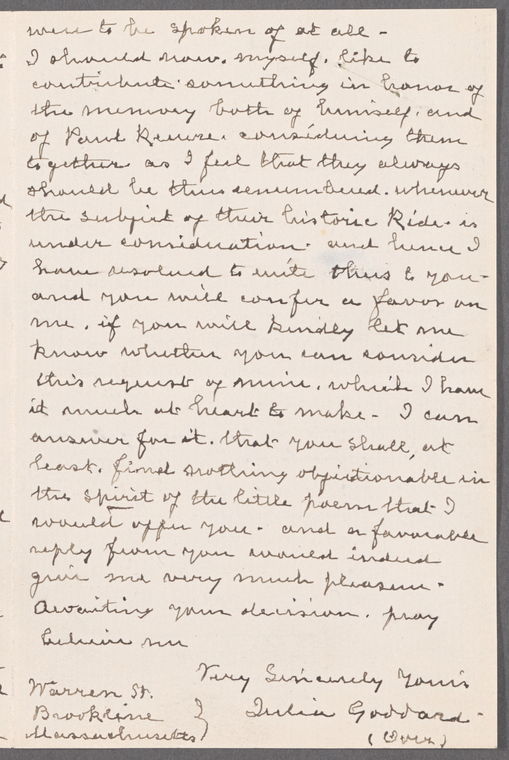 were to be spoken of at all -
I should now, myself, like to
contribute something in honor of
the memory both of himself, and
of Paul Revere, considering them
together as I feel that they always
should be thus remembered, whenever
the subject of their historic Ride, is
under consideration - and hence I
have resolved to write thus to you -
and you will confer a favor on
me, if you will kindly let me
know whether you can consider
this request of mine, which I have
it much at heart to make - I can
answer for it, that you shall, at
least, find nothing objectionable in
the spirit of the little poem that I
would offer you - and a favorable
reply from you would indeed
give me very much pleasure -
Awaiting your decision, pray
believe me
Very Sincerely Yours
Julia Goddard -
Warren St.
Brookline
Massachusetts }
(Over)